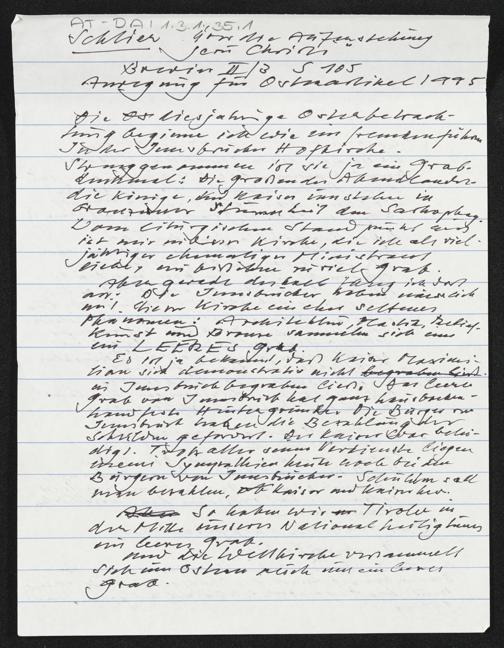 AT-DA | 1.3.1.35.1
Schlier Über die Auferstehung
Jesu Christi"
Brevier II/3 S 105
Anregung für Osterartikel 1995
Die diesjährige Osterbetrach-
tung beginne ich wie ein Fremdenführer
in der Innsbrucker Hofkirche.
Strenggenommen ist sie ja ein Grab-
denkmal: Die großen des Abendlandes
die Könige, und Kaiser umstehen in
den Sarkophag.
Vom liturgischen Standpunkt aus
ist mir in dieser Kirche, die ich als viel-
jähriger ehemaliger Ministrant
liebe, ein bißchen zuviel Grab.
Aber gerade deshalb fang ich dort
an: Die Innsbrucker haben nämlich
mit dieser Kirche ein eher seltenes
Phänomen: Architektur, Plastik, Relief-
kunst und Bronze sammeln sich um
ein LEERES Grab.
Es ist ja bekannt, daß Kaiser Maximi-
lian sich demonstrativ nicht begraben ließ
in Innsbruck begraben ließ. Das leere
Grab von Innsbruck hat ganz hausbacken-
handfeste Hintergründe. Die Bürger von
Innsbruck haben die Bezahlung der
Schulden gefordert. Der Kaiser war belei-
digt. Trotz aller seiner Verdienste liegen
meine Sympathien heute noch bei den
Bürgern von Innsbruck. Schulden soll
man bezahlen, ob Kaiser und Kaiser her.
So haben wir in Tirol in
der Mitte unseres Nationalheiligtums
ein leeres Grab.
Und die Weltkirche versammelt
sich um Ostern auch um ein leeres
Grab.